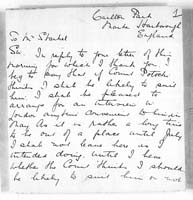 Carlton Park 1
Market Harborough
England
To Mr Strachel
Sir In reply to your letter of this
morning for which I thank you I
beg to say that if Count Potocki
thinks I shall be likely to suit
him I shall be pleased to
arrange for an interview in
London anytime convenient to him in
May As it is rather a long time
to be out of a place until July
I shall not leave here as I
intended doing until I hear
whether the Count thinks I should
be likely to suit him or not